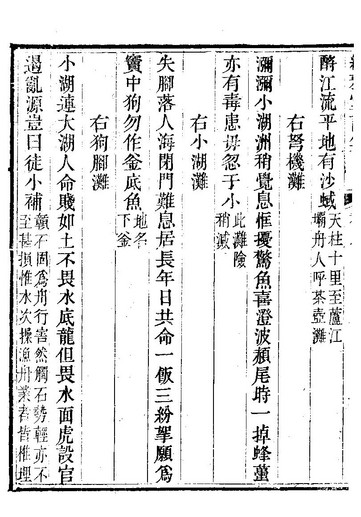 酹江流平地有沙蜮天柱十里至蘆江
壩舟人呼茶壺灘
右弩機灘
瀰瀰小湖洲稍覺息恇擾驚魚喜澄波頳尾時一掉蜂蠆
亦有毒患毋忽于小此灘險
稍滅
右小湖灘
失腳落人海閉門難息居長年日共命一飯三紛挐願為
竇中狗勿作釜底魚地名
下釜
右狗腳灘
小湖連大湖人命賤如土不畏水底龍但畏水面虎設官
遏亂源豈曰徒小補贛石固為舟行害然觸石勢輕亦不
至甚損惟水次操漁舟業者皆椎理